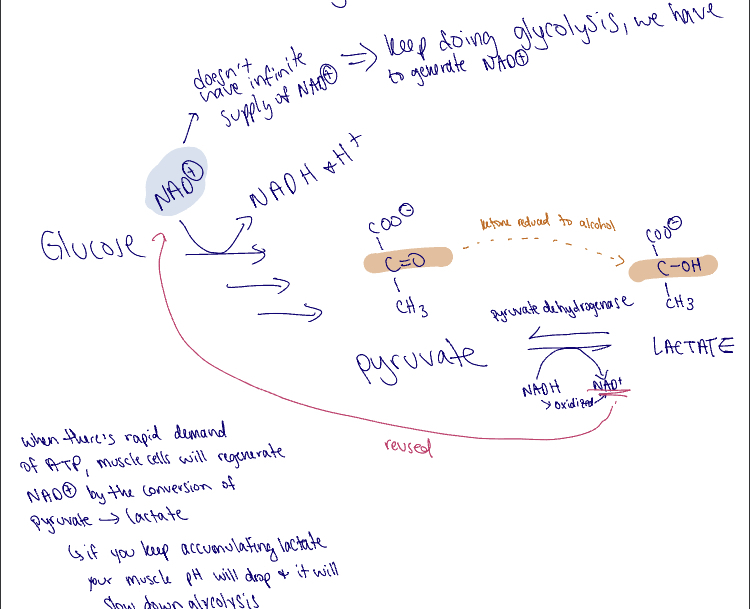 doesn't
have infinite
supply of NAD⊕
⇒ keep doing glycolysis, we have
to generate NAD⊕
NAD⊕
NADH + H+
Glucose
COO⊖
C=O
CH3
ketone reduced to alcohol
COO⊖
C-OH
CH3
pyruvate dehydrogenase
pyruvate
LACTATE
NADH
NAD+
oxidized
reused
when there's rapid demand
of ATP, muscle cells will regenerate
NAD⊕ by the conversion of
pyruvate → lactate
↳ if you keep accumulating lactate
your muscle pH will drop + it will
slow down glycolysis